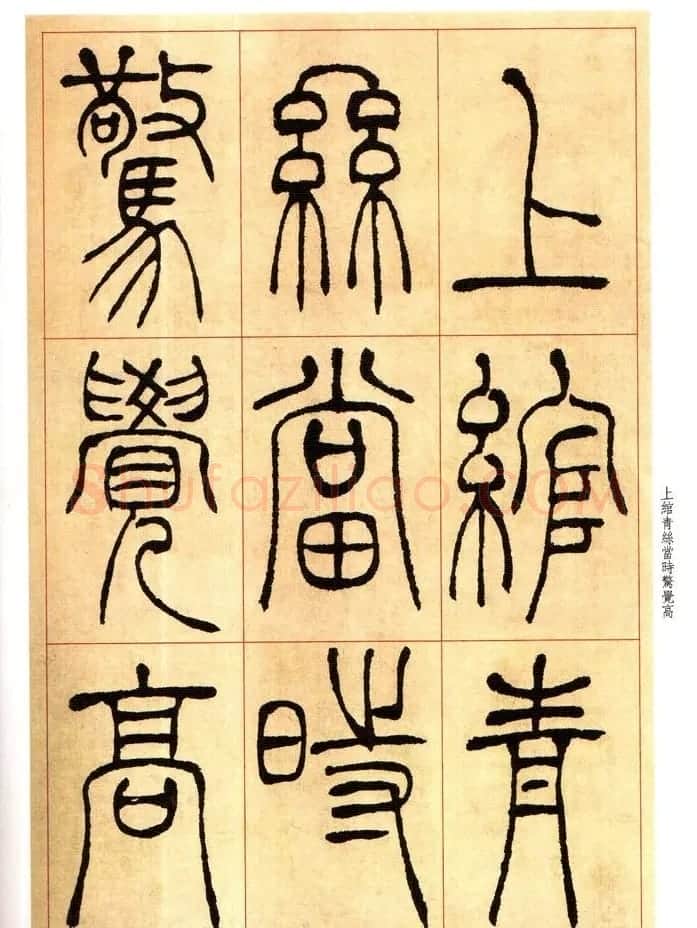 上綰青
絲當時
驚覺高
上綰青絲當時驚覺高
Shufaziliao.COM